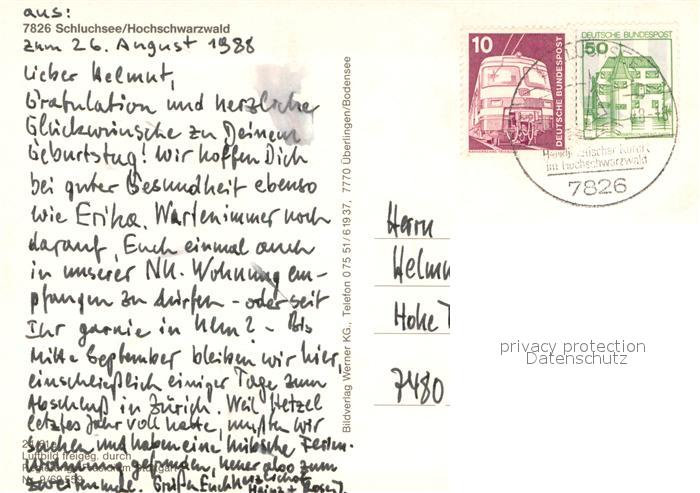 aus:
7826 Schluchsee/Hochschwarzwald
zum 26. August 1988
Lieber Helmut,
Gratulation und herzliche
Glückwünsche zu Deinem
Geburtstag! Wir hoffen Dich
bei guter Gesundheit ebenso
wie Erika. Warten immer noch
darauf, Euch einmal auch
in unserer NU. Wohnung em-
pfangen zu dürfen - oder seit
Ihr garnie in Ulm? - Bis
Mitte September bleiben wir hier,
einschließlich einiger Tage zum
Abschluß in Zürich. Weil Hetzel
letztes Jahr voll hatte, mußten wir
suchen und haben eine hübsche Ferien-
wohnung gefunden, heuer also zum
zweitenmale. Grüßen Euch herzlichst
Heinz +
Luftbild freigeg. durch
Bildverlag Werner KG., Telefon 0 75 51/6 19 37, 7770 Überlingen/Bodensee
10
DEUTSCHE BUNDESPOST
50
DEUTSCHE BUNDESPOST
Heilklimatischer Kurort
im Hochschwarzwald
7826
Herrn
Helmu
Hohe
7480
privacy protection
Datenschutz